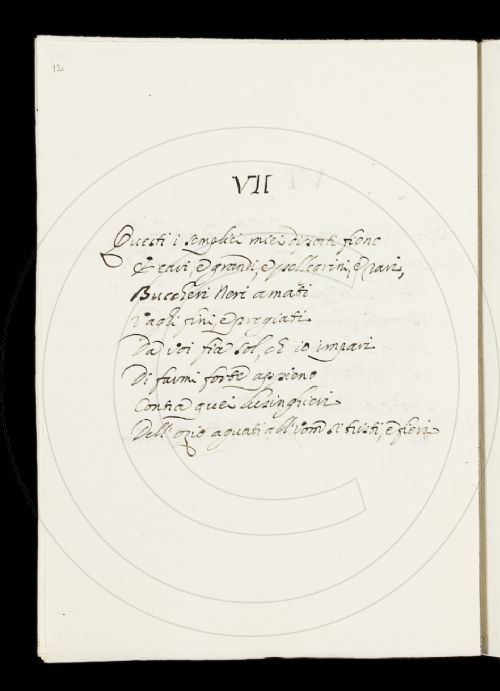 12
VII
Questi i semplici miei disciti sieno
E cavi, e grandi, e pellegrini, e rari,
Buccheri Neri amati
Vaghi fini, e pregiati
Da voi fia sol, ch' io impari
Di farmi forte appieno
Contra quei lusinghieri
Dell' ozio aguati all' uom si tristi, e fieri